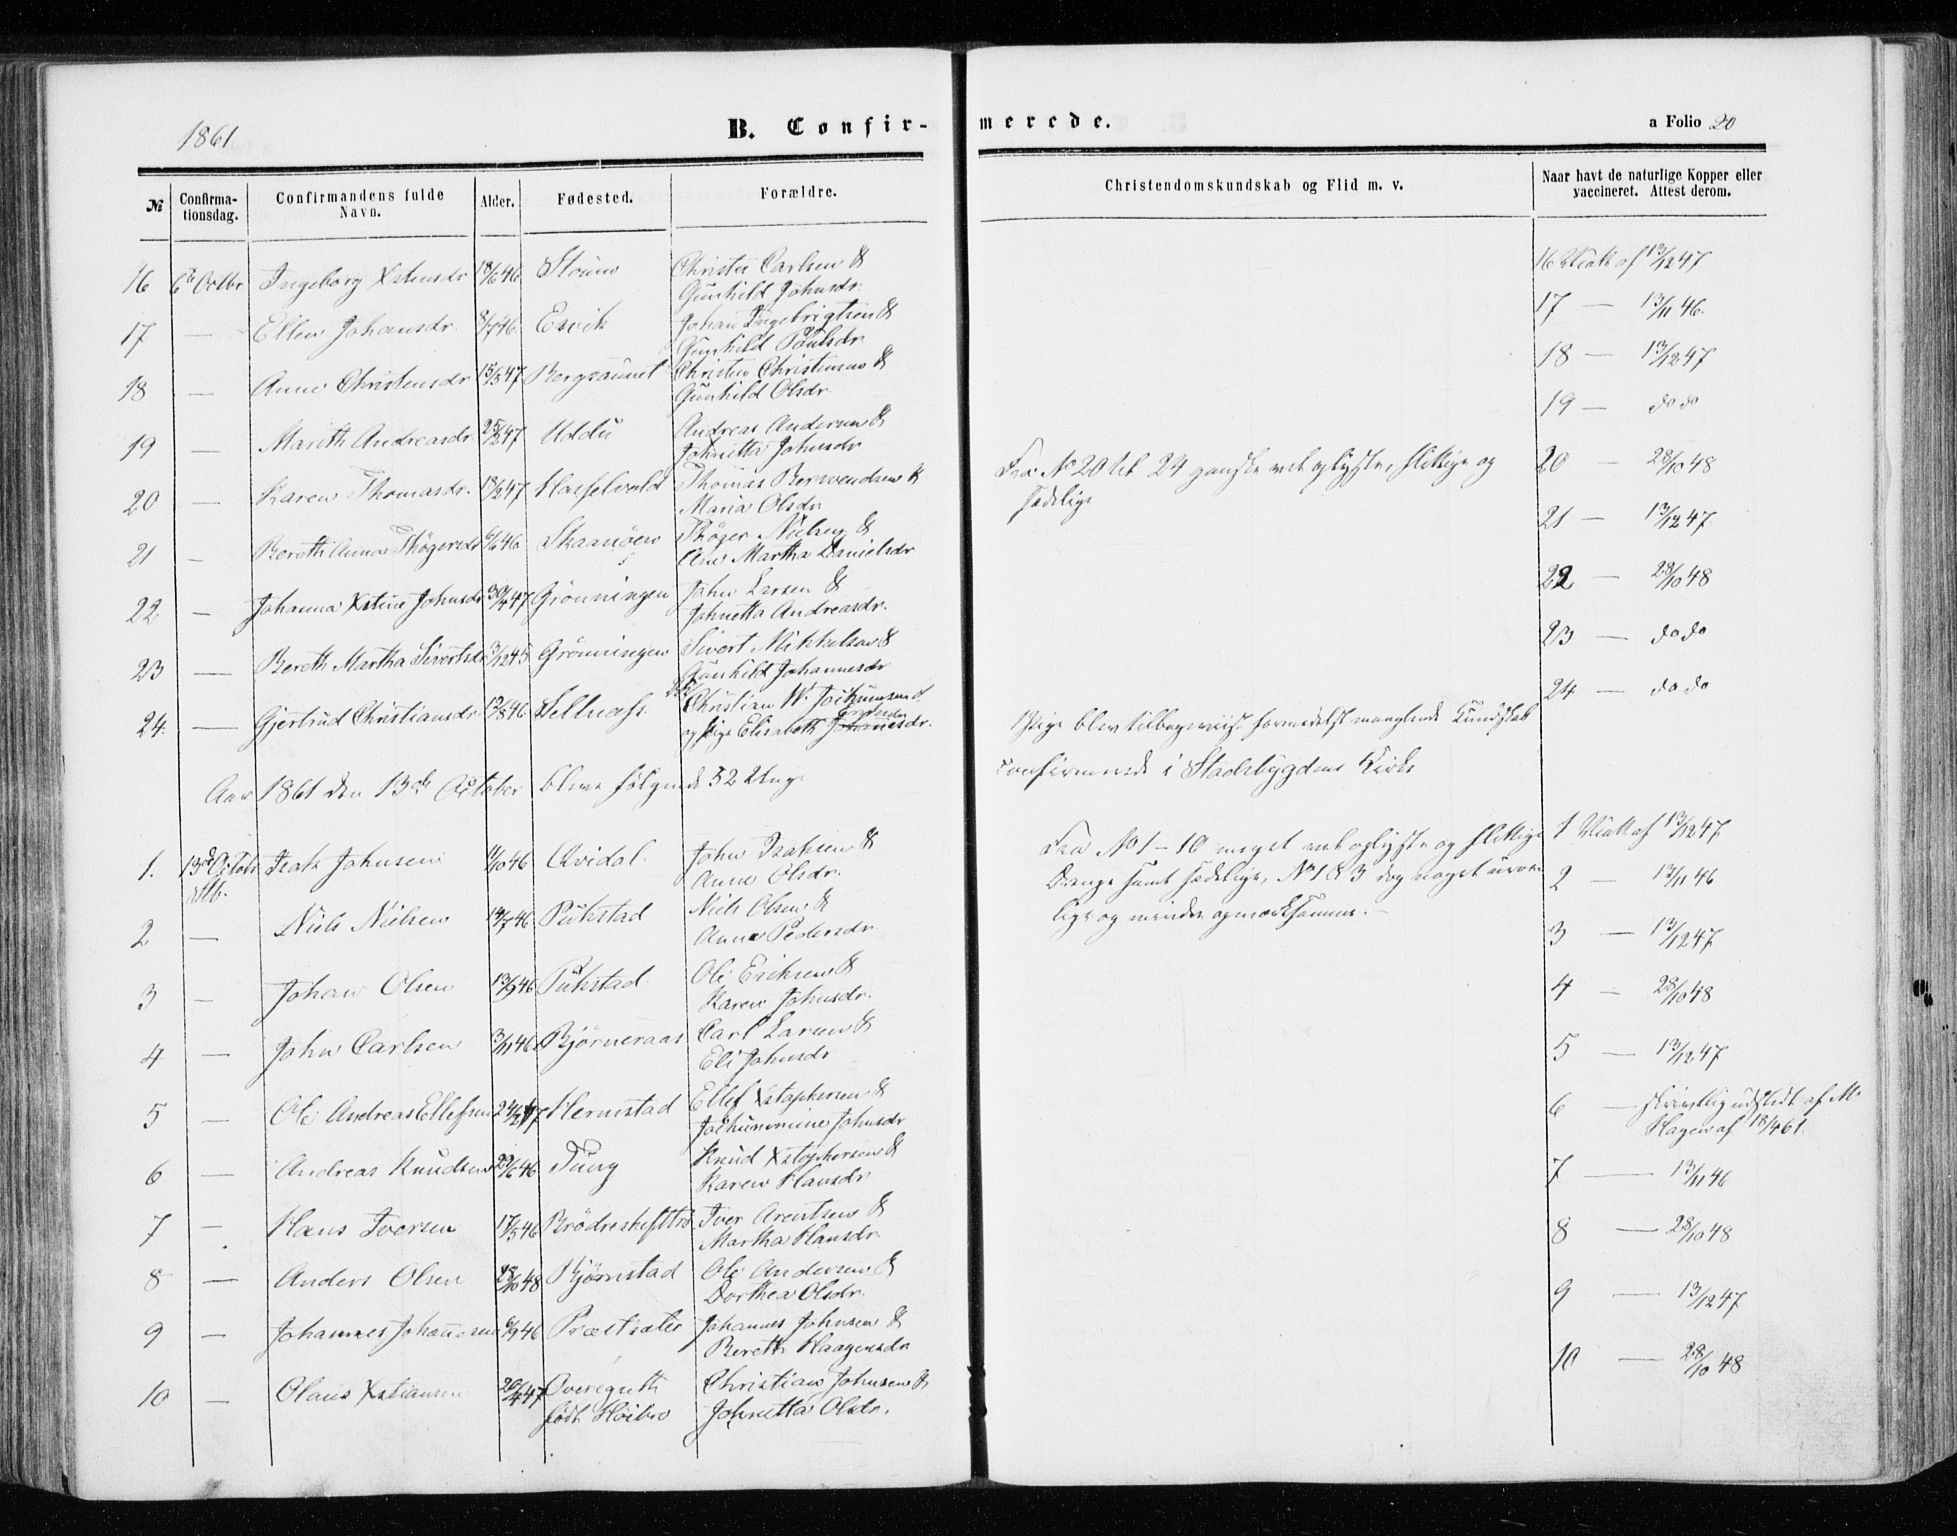 1861
B. Confir-
merede.
a Folio 20
№
Confirma-
tionsdag.
Confirmandens fulde
Navn.
Alder.
Fødested.
Forældre.
Christendomskundskab og Flid m. v.
Naar havt de naturlige Kopper eller
vaccineret. Attest derom.
16 6te Octbr Ingeborg Xstensdr 18/6 46 Christen Carlsen &
Gunhild Johnsdr.
16 Vatt af 13/12 47
17 — Ellen Johansdr. 8/7 46 Esvik Johan Ingebrigtsen &
Gunhild Paulsdr
17 — 13/11 46.
18 — Anne Christensdr 15/5 47 Bergsaunet Christen Christensen &
Gunhild Olsdr.
18 — 13/12 47
19 — Marith Andreasdr 25/2 47 Uddu Andreas Andersen &
Johnetta Johnsdr
19 — do do
20 — Karen Thomasdr. 18/2 47 Hasselvold Thomas Berwendsen &
Maria Olsdr
Fra No 20 til 24 ganske vel oplyste, flittige og
sædelige
20 — 28/10 48
21 — Bereth Anna Thøgersdr 6/6 46 Skaanøen Thøger Nielsen &
Ane Martha Danielsdr
21 — 13/12 47
22 — Johanna Xstine Johnsdr 30/4 47 Grønningen John Larsen &
Johnetta Andreasdr.
22 — 28/10 48
23 — Bereth Martha Sivertsdr 3/12 45 Grønningen Sivert Mikkelsen &
Gunhild Johannesdr
23 — do do
24. — Gjertrud Christiansdr 12/8 46 Sellnæss. Christian W. Jochumsen &
og Pige Elisabeth Johnnesdr.
24 — do do
1 Pige blev tilbageviist formedelst manglende Kundskab
Aar 1861 den 13de October bleve følgende 52 Unge
confirmerede i Stadsbygdens Kirke
1. 13de October Isak Johnsen 11/10 46 Avidal. John Isaksen &
Anne Olsdr.
Fra No 1 – 10 meget vel oplyste og flittige
Drenge samt sædelige, No 1 & 3 dog noget urolige
lige og mindre opmærksomme. —
1 Vatt af 13/12 47
2 — Niels Nielsen 14/7 46 Pukstad Niels Olsen &
Anna Pedersdr
2 — 13/11 46
3 — Johan Olsen 13/9 46 Pukstad Ole Eriksen &
Karen Johnsdr.
3 — 13/12 47
4 — John Carlsen 3/11 46 Bjørneraas Carl Larsen &
Eli Johnsdr
4 — 28/10 48
5 — Ole Andreas Ellefsen 24/2 47 Hermstad Ellef Xstophersen &
Jochumine Johnsdr
5 — 13/12 47
6 — Andreas Knudsen 29/6 46 Tung Knud Xstophersen &
Karen Hansdr
6 — skriftlig udstedt af M.
Hagen af 18/4 61.
7 — Hans Iversen 17/5 46 Iver Arentsen &
Martha Hansdr.
7 — 13/11 46
8 — Anders Olsen 28/10 48 Bjørnstad Ole Andersen &
Dorthea Olsdr.
8 — 28/10 48
9 — Johannes Johannesen 6/9 46 Præstsæter Johannes Johnsen &
Bereth Haagensdr
9 — 13/12 47
10 — Olaus Xstiansen 20/4 47 Overegseth
født Høibro
Christian Johnsen &
Johnetta Olsdr.
10 — 28/10 48